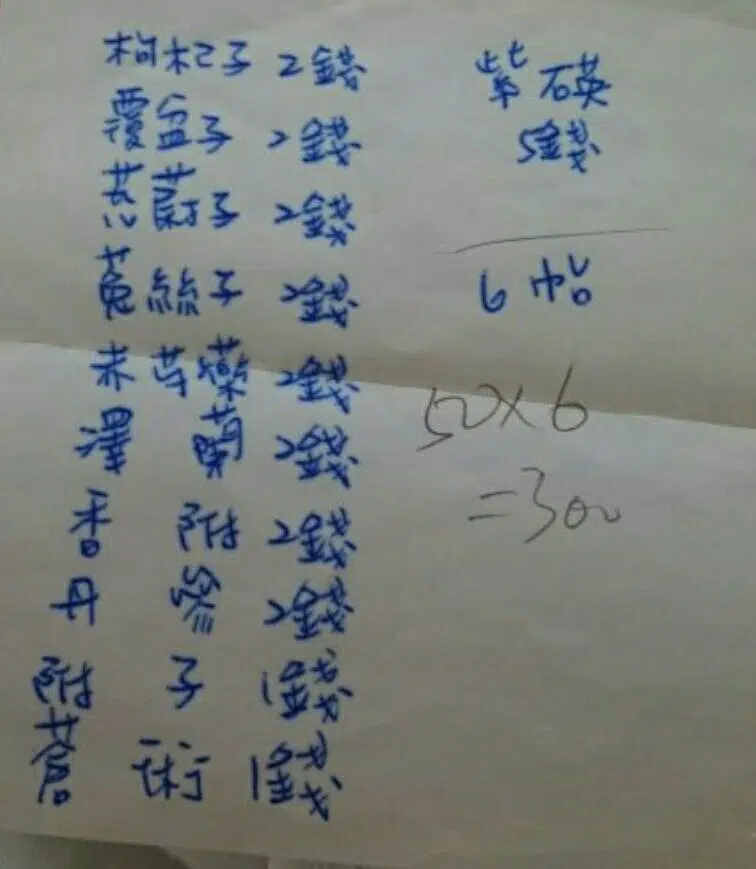 枸杞子 2錢
覆盆子 2錢
茺蔚子 2錢
菟絲子 2錢
赤芍藥 2錢
澤蘭 2錢
香附 2錢
丹參 2錢
附子 1錢
蒼術 1錢
紫石英
5錢
6帖
50×6
=300